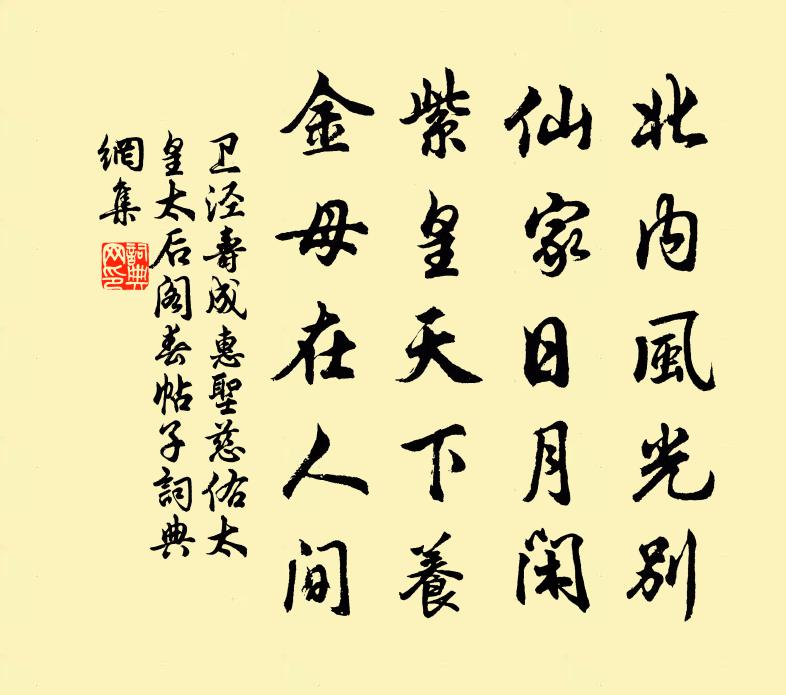 北內風光别
仙家日月閑
紫皇天下養
金母在人間
卫泾壽成惠聖慈佑太
皇太后阁春帖子詞典
網集
詞典
网印